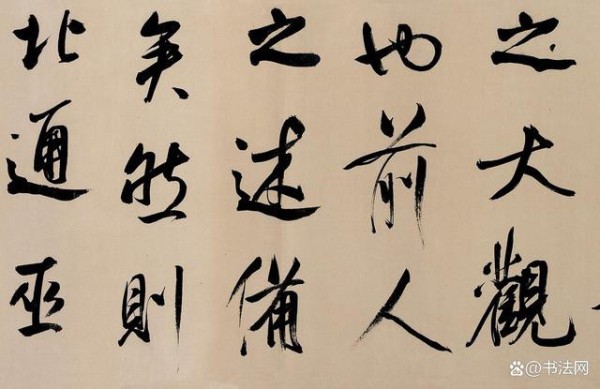 之大觀
也前人
之述備
矣然則
北通巫
@书法网